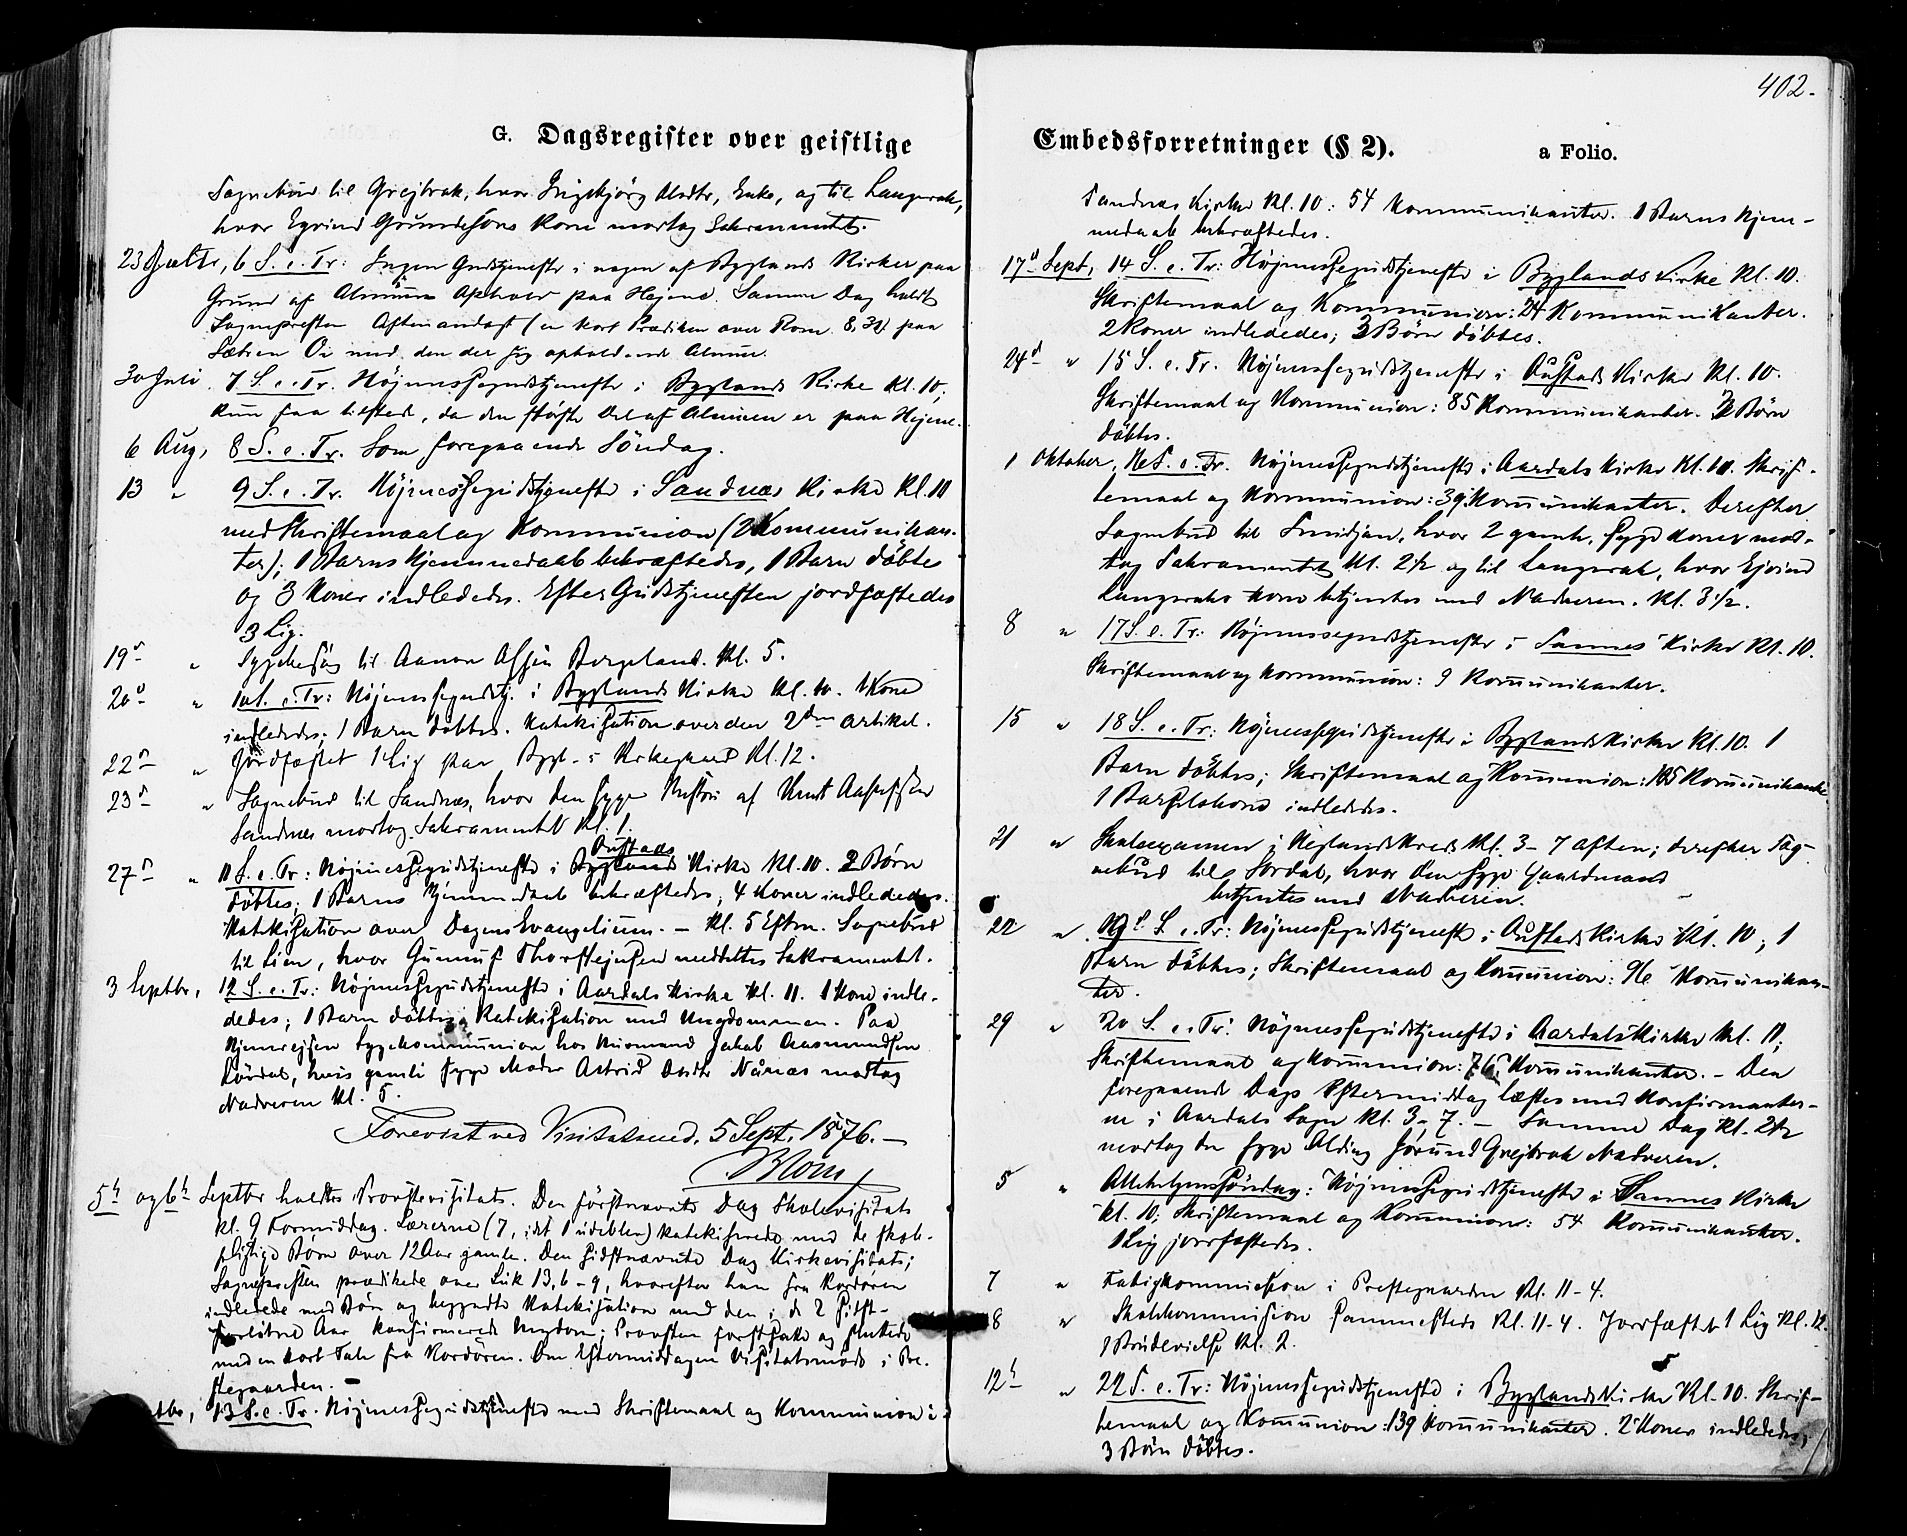 402.
G. Dagsregister over geistlige
Sognebud til Grejtrak, hvor Ingebjörg Olsdtr, Enke, og til Langerak,
hvor Eyvind Gundersöns Kone modtog Sakramentet.
6 S. e. Tr: Ingen Gudstjeneste i nogen af Byglands Kirker paa
Grund af Almuens Ophold paa Hejene. Samme Dag holdt
Sognepresten Aftenandagt (en kort Prædiken over Rom. 8, paa
med den der sig opholdende Almue.
30 Juli. 7 S. e. Tr. Höjmessegudstjeneste i Byglands Kirke Kl. 10;
kun faa tilstede, da den störste Del af Almuen er paa Hejene.
6 Aug, 8 S. e. Tr. Som foregaaende Söndag.
13 " 9 S. e. Tr. Höjmessegudstjeneste i Sandnæs Kirke Kl. 10
med Skriftemaal og Kommunion (2 Kommunikan-
ter); 1 Barns Hjemmedaab bekræftedes, 1 Barn döbtes
og 3 Koner indlededes. Efter Gudstjenesten jordfæstedes
3 Lig.
19d " Sygebesög til Aanon Bergland. Kl. 5.
20d " 10 S. e. Tr: Höjmessegudstj. i Byglands Kirke Kl. 10. 1 Kone
indlededes; 1 Barn döbtes. Katekisation over den 2den Artikel.
22d " Jordfæstet 1 Lig paa Bygl.s Kirkegaard Kl. 12.
23d " Sognebud til Sandnæs, hvor den syge af Knut
Sandnæs modtog Sakramentet Kl. 1.
Austads
27d " 11 S. e. Tr: Höjmessegudstjeneste i Byglands Kirke Kl. 10. 2 Börn
döbtes; 1 Barns Hjemmedaab bekræftedes; 4 Koner indlededes.
Katekisation over Dagens Evangelium. – Kl. 5 Eftm. Sognebud
til Lien, hvor Gunnuf Thorstejnsen meddeltes Sakramentet.
3 Septbr, 12 S. e. Tr: Höjmessegudstjeneste i Aardals Kirke Kl. 11. 1 Kone indle-
dedes; 1 Barn döbtes; Katekisation med Ungdommen. Paa
Hjemrejsen Sygekommunion hos Husmand Jakob Aasmundsen
hvis gamle syge Moder Astrid modtog
Nadveren Kl. 5.
Forevist ved Visitatsmød, 5 Sept. 1876. –
Blom
5te og 6te Septbr holdtes Provstevisitats. Den förstnævnte Dag Skolevisitats
Kl. 9 Formiddag. Lærerne (7, idet 1 udeblev) katekiserede med de skole-
pligtige Börn over 12 Aar gamle. Den sidstnævnte Dag Kirkevisitats;
Sognepresten prædikede over Luk 13, 6–9, hvorefter han fra Kordören
indledede med Bön og begyndte Katekisation med den i de 2 sidst-
forløbne Aar konfirmerede Ungdom; Provsten fortsatte og sluttede
med en kort Tale fra Kordören. Om Eftermiddagen Visitatsmöde i Pre-
stegaarden. –
13 S. e. Tr. Höjmessegudstjeneste med Skriftemaal og Kommunion i
Embedsforretninger (§ 2). a Folio.
Sandnæs Kirke Kl. 10: 54 Kommunikanter. 1 Barns Hjem-
medaab bekræftedes.
17d Sept, 14 S. e. Tr: Höjmessegudstjeneste i Byglands Kirke Kl. 10.
Skriftemaal og Kommunion: 24 Kommunikanter.
2 Koner indlededes; 3 Börn döbtes.
24d " 15 S. e. Tr. Höjmessegudstjeneste i Austads Kirke Kl. 10.
Skriftemaal og Kommunion: 85 Kommunikanter. 2 Börn
döbtes.
1 Oktober, 16 S. e. Tr. Höjmessegudstjeneste i Aardals Kirke Kl. 10. Skrif-
temaal og Kommunion: 39 Kommunikanter. Derefter
Sognebud til hvor 2 gamle, syge Koner mod-
tog Sakramentet Kl. 2 1/2 og til Langerak, hvor Ejvind
Langeraks Kone betjentes med Nadveren. Kl. 3 1/2.
8 " 17 S. e. Tr: Höjmessegudstjeneste i Sannes Kirke Kl. 10.
Skriftemaal og Kommunion: 9 Kommunikanter.
15 " 18 S. e. Tr: Höjmessegudstjeneste i Byglands Kirke Kl. 10. 1
Barn döbtes; Skriftemaal og Kommunion: 105 Kommunikanter
1 Barselskone indlededes.
21 " Skoleexamen i Neglands Kreds Kl. 3–7 Aften; derefter Sog-
nebud til hvor den syge Gaardmand
betjentes med Nadveren.
22 " 19d S. e. Tr: Höjmessegudstjeneste i Austads Kirke Kl. 10; 1
Barn döbtes; Skriftemaal og Kommunion: 96 Kommunikan-
ter.
29 " 20 S. e. Tr: Höjmessegudstjeneste i Aardals Kirke Kl. 11;
Skriftemaal og Kommunion: 76 Kommunikanter. – Den
foregaaende Dags Eftermiddag læstes med Konfirmanter-
ne i Aardals Sogn Kl. 3–7. – Samme Dag Kl. 2 1/2
modtog den syge Olding Jørund Grejtrak Nadveren.
5 " Allehelgenssöndag: Höjmessegudstjeneste i Sannes Kirke
Kl. 10; Skriftemaal og Kommunion: 54 Kommunikanter.
1 Lig jordfæstedes.
7 " Fatigkommission i Prestegaarden Kl. 11–4.
8 " Skolekommission sammesteds Kl. 11–4. Jordfæstet 1 Lig Kl. 12.
1 Brudevielse Kl. 2.
12te " 22 S. e. Tr: Höjmessegudstjeneste i Byglands Kirke Kl. 10. Skrif-
temaal og Kommunion: 139 Kommunikanter. 2 Koner indlededes;
3 Börn döbtes.